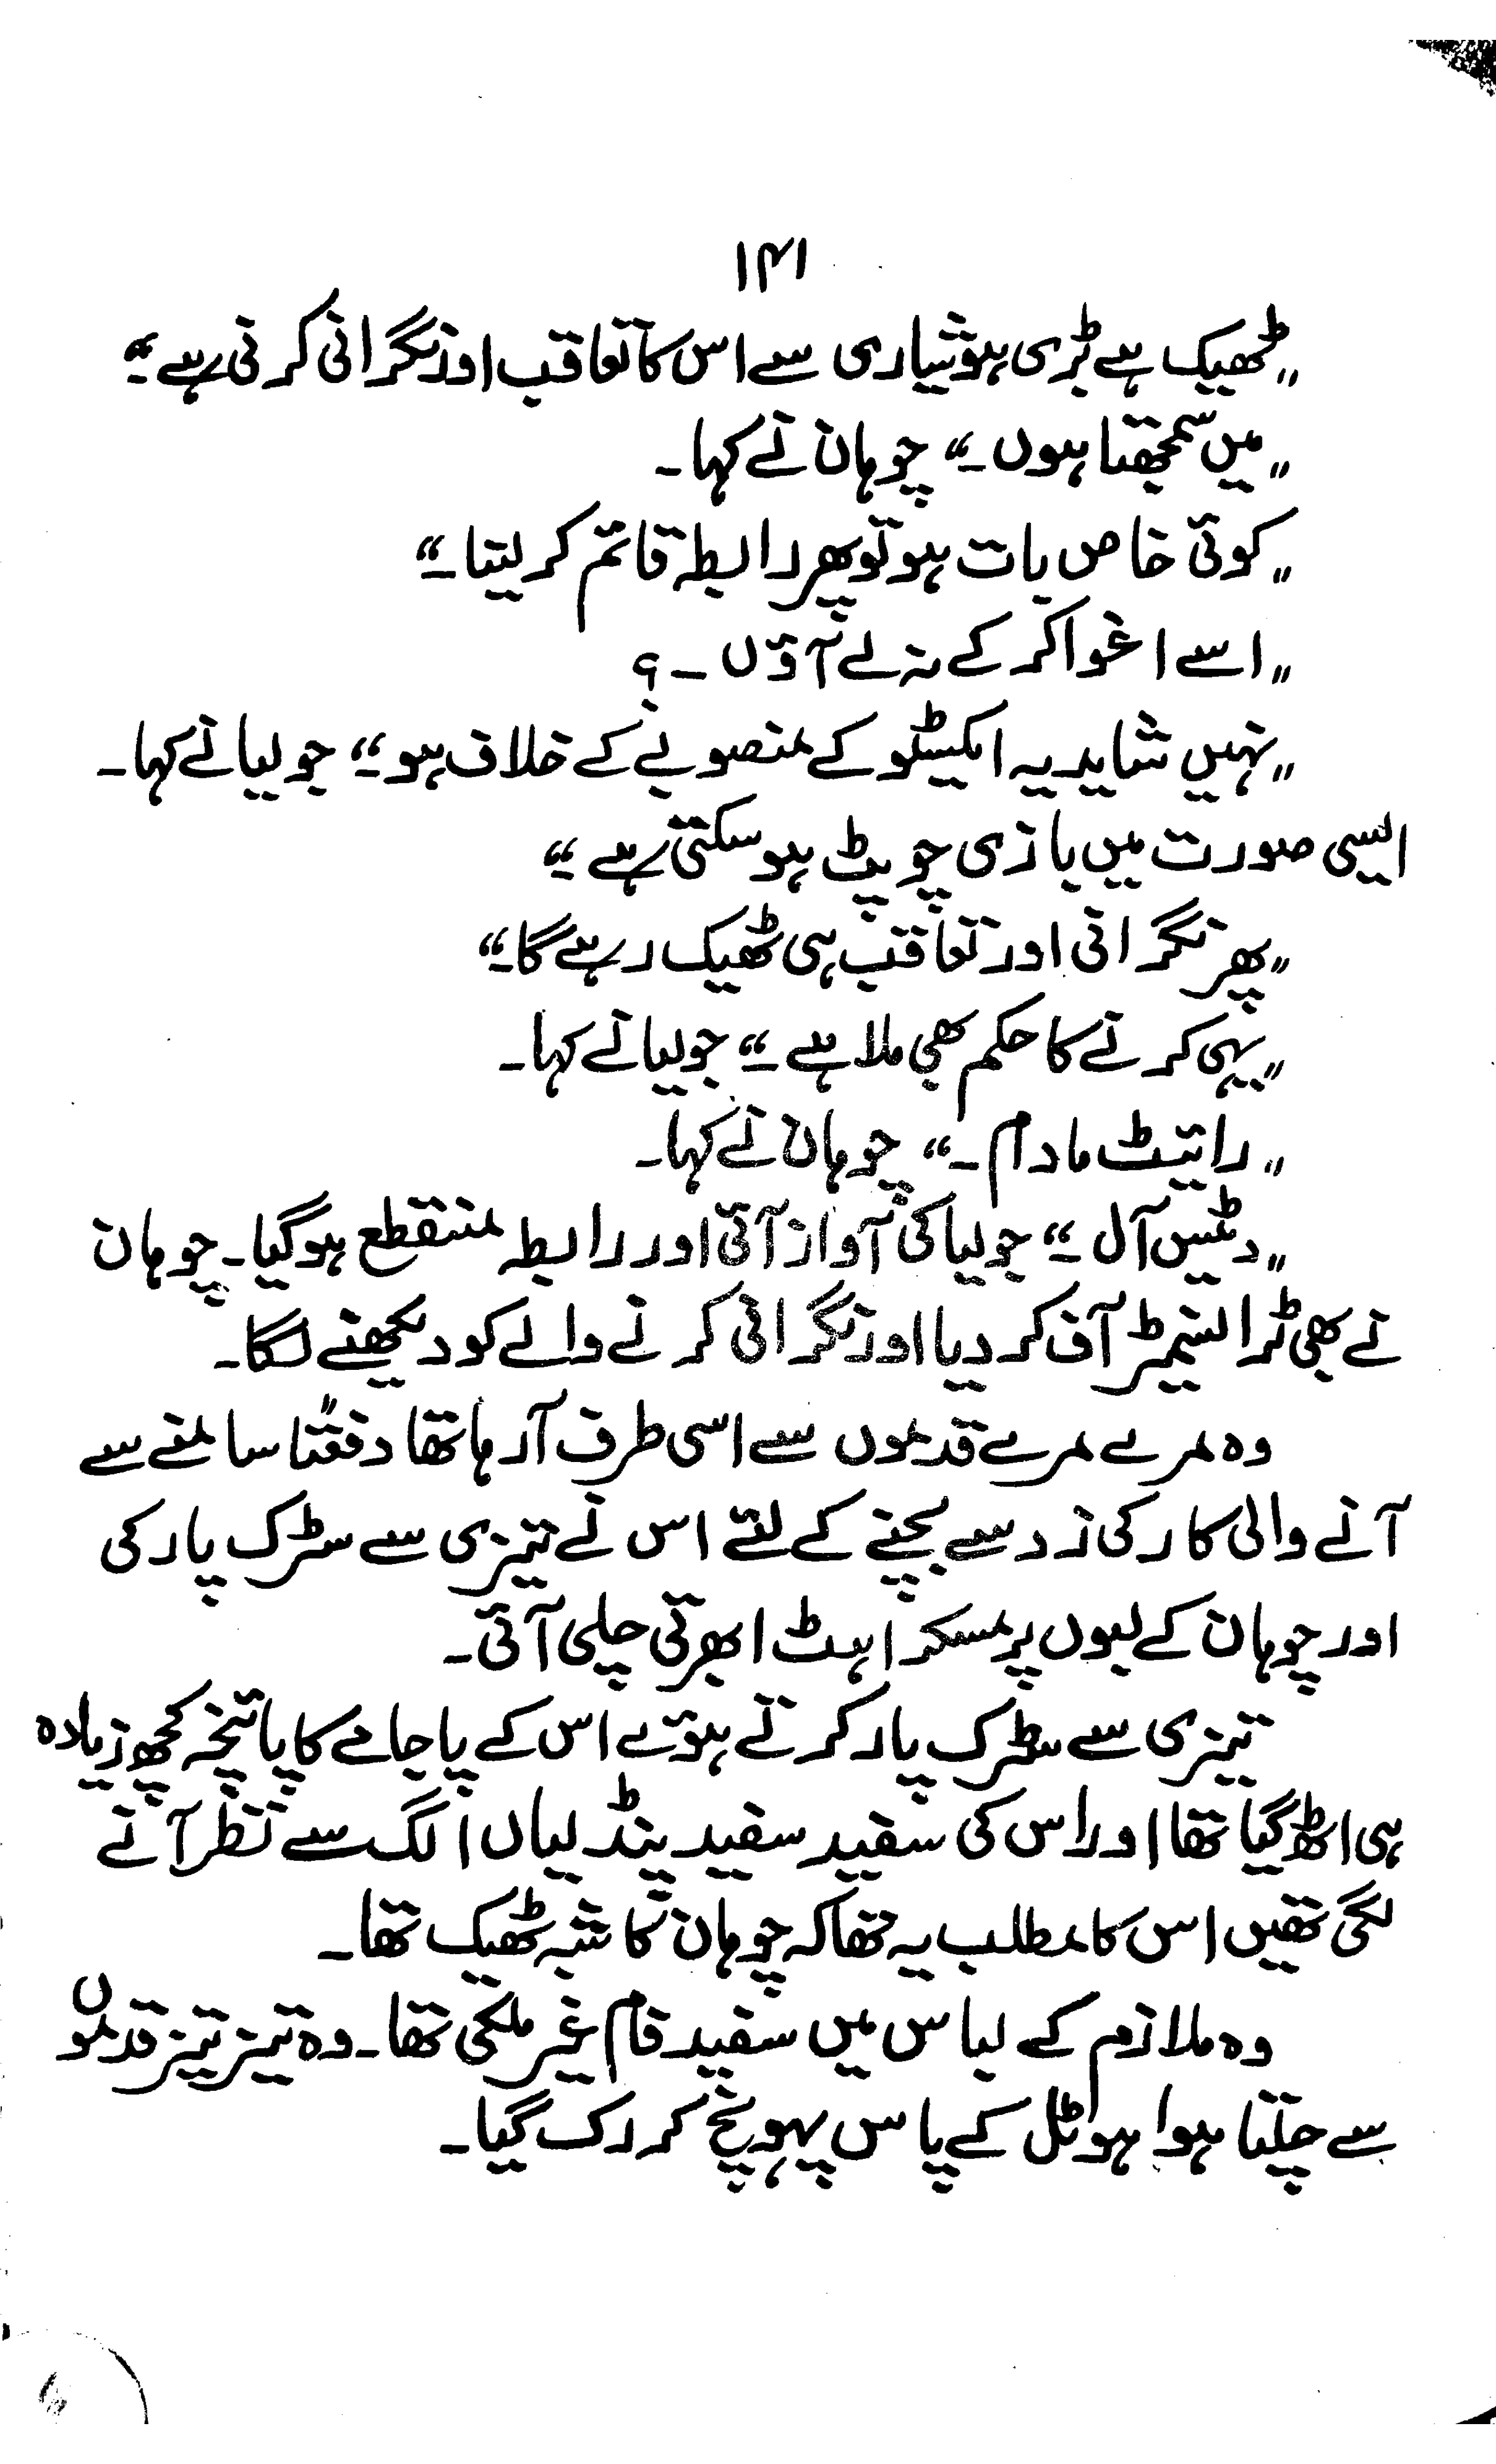 ۱۴۱
"ٹھیک ہے بڑی ہوشیاری سے اس کا تعاقب اور نگرانی کرنی ہے۔"
"میں سمجھتا ہوں۔" چوہان نے کہا۔
"کوئی خاص بات ہو تو پھر رابطہ قائم کر لینا۔"
"اسے اغوا کر کے نہ لے آؤں۔؟
"نہیں شاید یہ ایکسٹو کے منصوبے کے خلاف ہو۔" جولیا نے کہا۔
ایسی صورت میں بازی چوپٹ ہو سکتی ہے۔"
"پھر نگرانی اور تعاقب ہی ٹھیک رہے گا۔"
"یہی کرنے کا حکم بھی ملا ہے۔" جولیا نے کہا۔
"رائیٹ مادام۔" چوہان نے کہا۔
"دیٹس آل۔" جولیا کی آواز آئی اور رابطہ منقطع ہو گیا۔ چوہان
نے بھی ٹرانسمیٹر آف کر دیا اور نگرانی کرنے والے کو دیکھنے لگا۔
وہ مرے مرے قدموں سے اسی طرف آ رہا تھا دفعتًا سامنے سے
آنے والی کار کی زد سے بچنے کے لئے اس نے تیزی سے سڑک پار کی
اور چوہان کے لبوں پر مسکراہٹ ابھرتی چلی آئی۔
تیزی سے سڑک پار کرتے ہوئے اس کے پاجامے کا پائنچہ کچھ زیادہ
ہی اٹھ گیا تھا اور اس کی سفید سفید پنڈلیاں الگ سے نظر آنے
لگی تھیں اس کا مطلب یہ تھا کہ چوہان کا شبہ ٹھیک تھا۔
وہ ملازم کے لباس میں سفید فام غیر ملکی تھا۔ وہ تیز تیز قدموں
سے چلتا ہوا ہوٹل کے پاس پہونچ کر رک گیا۔